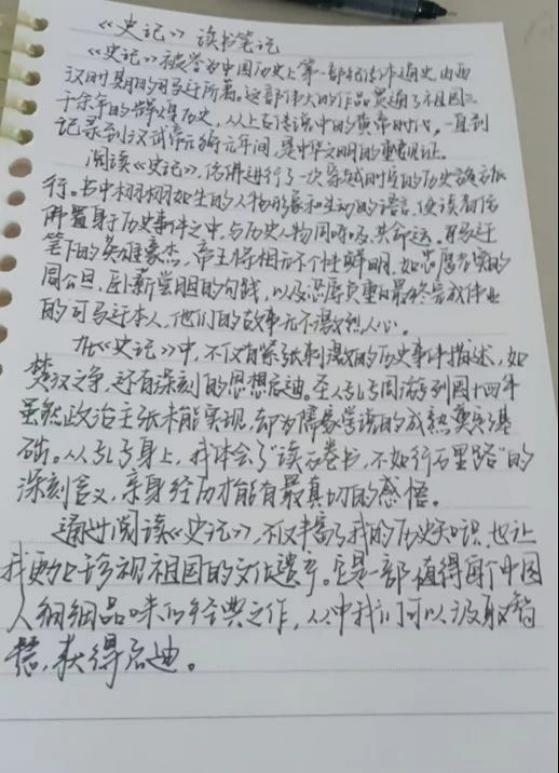 《史记》读书笔记
《史记》被誉为中国历史上第一部纪传体通史,由西
汉时期的司马迁所著。这部伟大的作品贯通了祖国三
千余年的辉煌历史,从上古传说中的黄帝时代,一直到
记录到汉武帝元狩元年间,是中华文明的重要见证。
阅读《史记》,仿佛进行了一次穿越时空的历史
行。书中栩栩如生的人物形象和生动的语言,使读者仿
佛置身于历史事件之中,与历史人物同呼吸,共命运。司马迁
笔下的英雄豪杰,帝王将相无不个性鲜明,如忠厚老实的
周公旦,卧薪尝胆的勾践,以及忍辱负重最终完成伟业
的司马迁本人,他们的故事无不激烈人心。
在《史记》中,不仅有紧张刺激的历史事件描述,如
楚汉之争,还有深刻的思想启迪。圣人孔子周游列国十四年
虽然政治主张未能实现,却为儒家学说的成熟奠定基
础。从孔子身上,我体会了"读万卷书,不如行万里路"的
深刻含义,亲身经历才能有最真切的感悟。
通过阅读《史记》,不仅丰富了我的历史知识,也让
我更加珍视祖国的文化遗产。它是一部值得每个中国
人细细品味的经典之作,从中我们可以汲取智
慧,获得启迪。